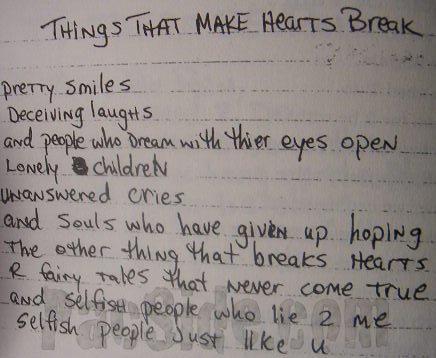 Things That Make Hearts Break
pretty smiles
Deceiving laughs
and people who Dream with thier eyes open
Lonely children
unanswered cries
and souls who have given up hoping
The other thing that breaks Hearts
R fairy tales that never come true
and selfish people who lie 2 me
selfish people just like u